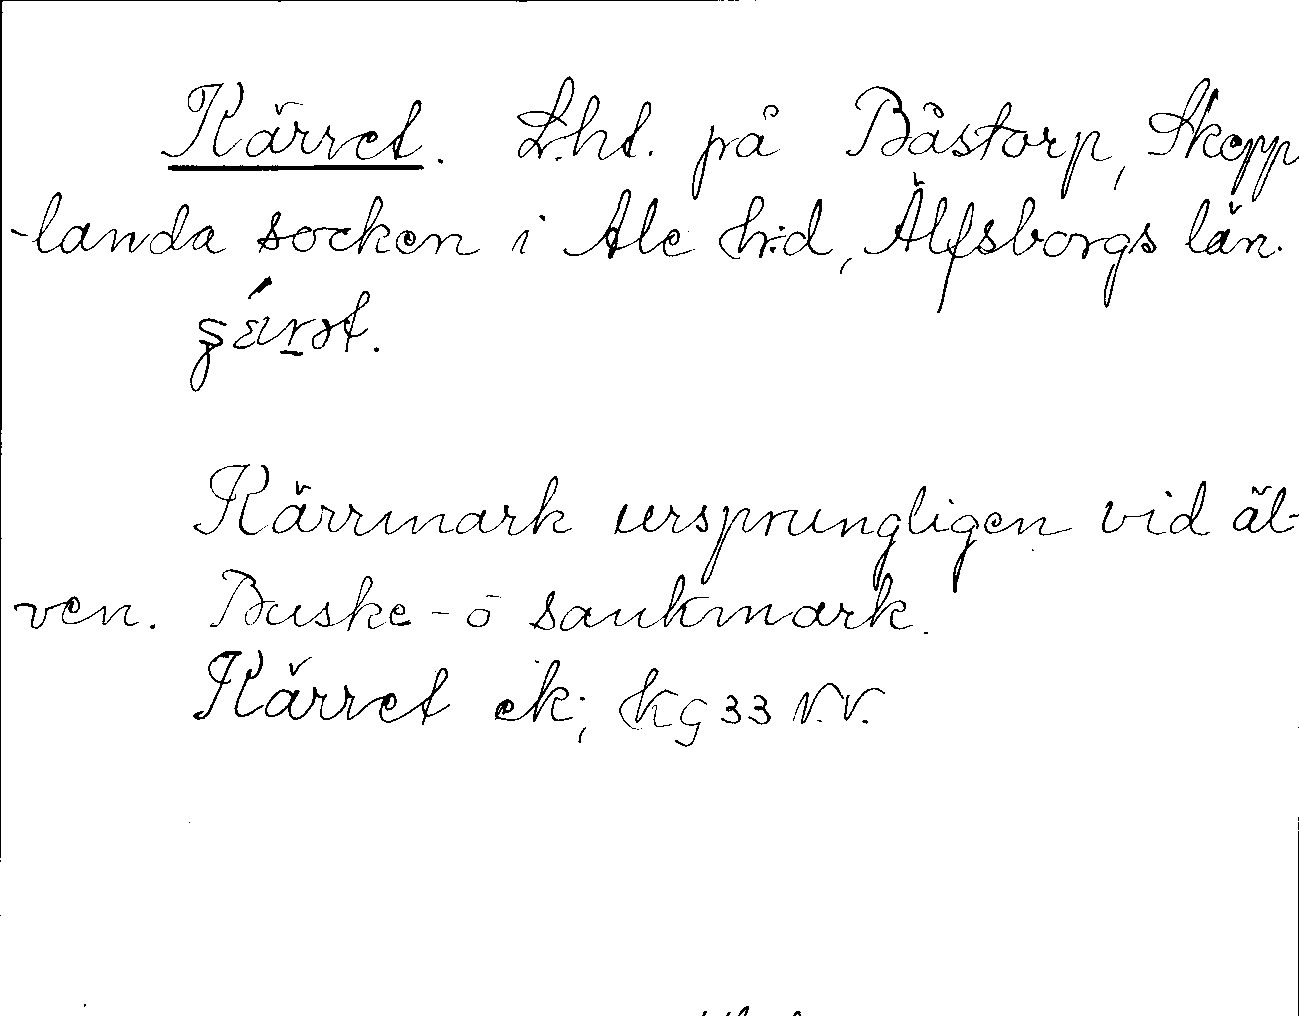 Kärret. L.ht. på Båstorp, Skepp
-landa socken i Ale h:d, Älfsborgs län.
Kärrmark ursprungligen vid äl-
ven. Buske- o sankmark.
Kärret ek; kg 33 N.V.